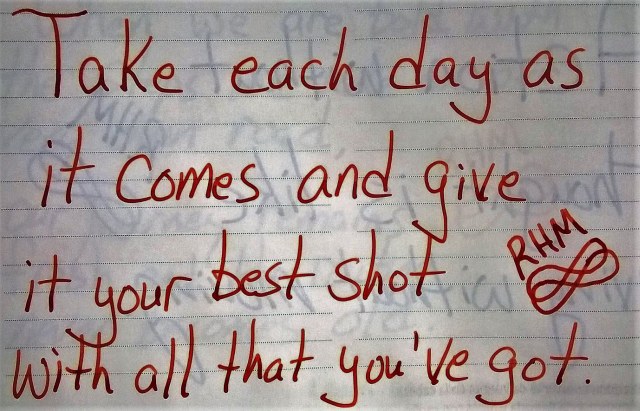 Take each day as
it comes and give
it your best shot
RHM
with all that you've got.